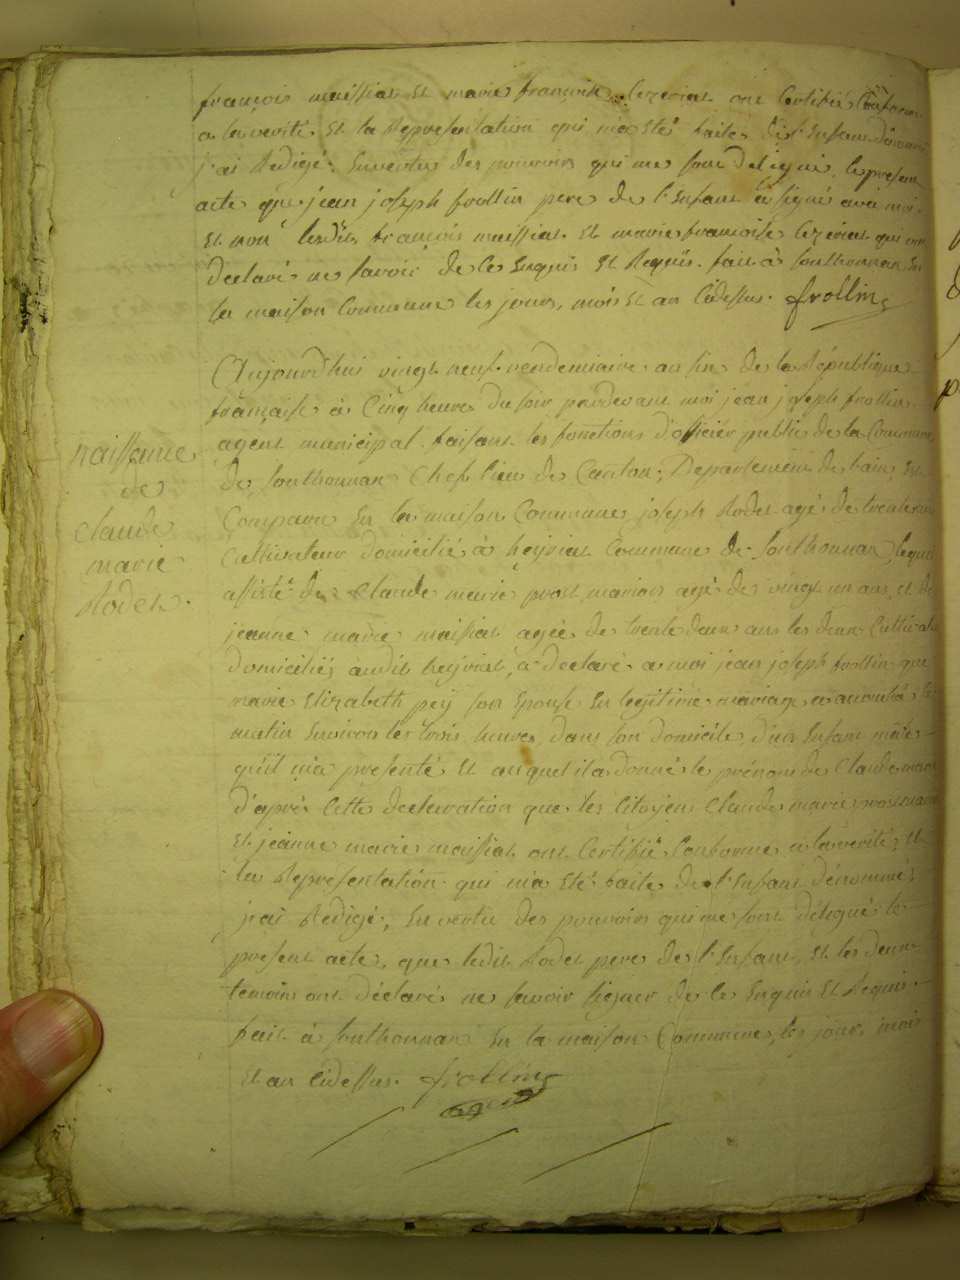 françois maissiat et marie françoise Lezeriat ont Certifié Conforme
a la verité, et la Représentation qui m'a eté faite de l'Enfant dénommé
j'ai Redigé, En vertu des pouvoirs qui me sont delegué, le present
acte que jean joseph frollin pere de l'Enfant a signé avec moi.
Et non lesdits françois maissiat et marie francoise Lezeriat qui ont
declaré ne savoir de ce Enquis et Requis. fait à sonthonnax En
la maison Commune les jours, mois Et an Cidessus. frollin
Aujourdhui vingt neuf vendemiaire an six de la République
française à Cinq heures du soir pardevant moi jean joseph frollin
agent municipal faisant les fonctions d'officier public de la Commune
de sonthonnax Chef lieu de Canton, Departement de l'ain, Est
Comparu En la maison Commune joseph Rodet agé de trente
Cultivateur domicilié à heyriat Commune de sonthonnax, lequel
assisté de Claude marie prost marion agé de vingt un ans, et de
jeanne marie maissiat agée de trente deux ans les deux Cultivateurs
domiciliés audit heyriat, a declaré a moi jean joseph frollin que
marie Elizabeth pey son Epouse En legitime mariage a accouché le
matin Environ les trois heures, dans son domicile d'un Enfant mâle
qu'il m'a presenté Et auquel il a donné le prénom de Claude marie
d'après Cette declaration que les Citoyens Claude marie prost marion
Et jeanne marie maissiat ont Certifié Conforme a la verité, Et
la Représentation qui m'a eté faite de l'Enfant dénommé,
j'ai Redigé, En vertu des pouvoirs qui me sont délegué le
present acte, que ledit Rodet pere de l'Enfant, et les deux
temoins ont déclaré ne savoir signer de ce Enquis Et Requis.
fait à sonthonnax En la maison Commune, les jour, mois
Et an Cidessus. frollin
naissance
de
Claude
marie
Rodet.